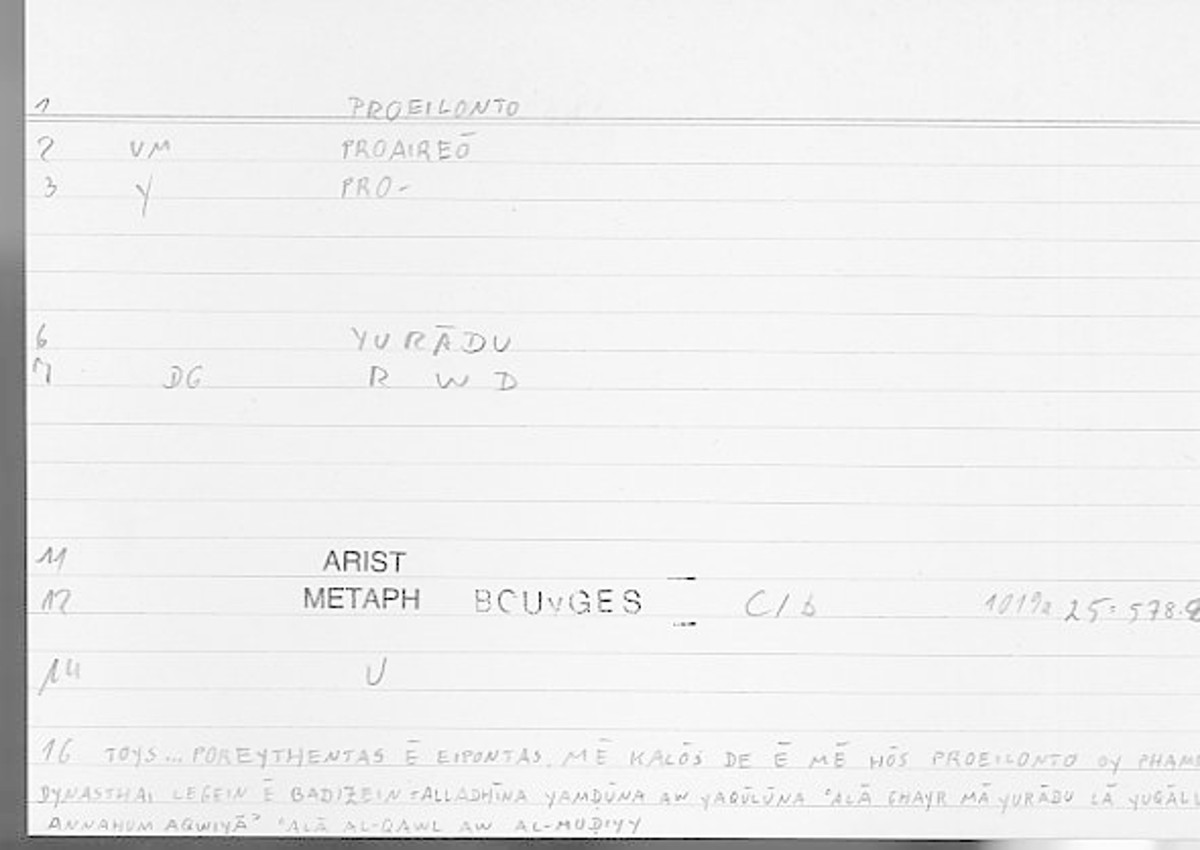 1 PROEILONTO
2 VM PROAIREŌ
3 Y PRO-
6 YURĀDU
7 DG R W D
11 ARIST
12 METAPH BOUYGES C/b 1019a 25: 578.8
14 U
16 TOYS... POREYTHENTAS Ē EIPONTAS, MĒ KALŌS DE Ē MĒ HŌS PROEILONTO OY PHAM
DYNASTHAI LEGEIN Ē BADIZEIN = ALLADHĪNA YAMḌŪNA AW YAQŪLŪNA ʿALĀ GHAYR MĀ YURĀDU LĀ YUQĀL
ANNAHUM AQWIYĀʾ ʿALĀ AL-QAWL AW AL-MUḌIYY